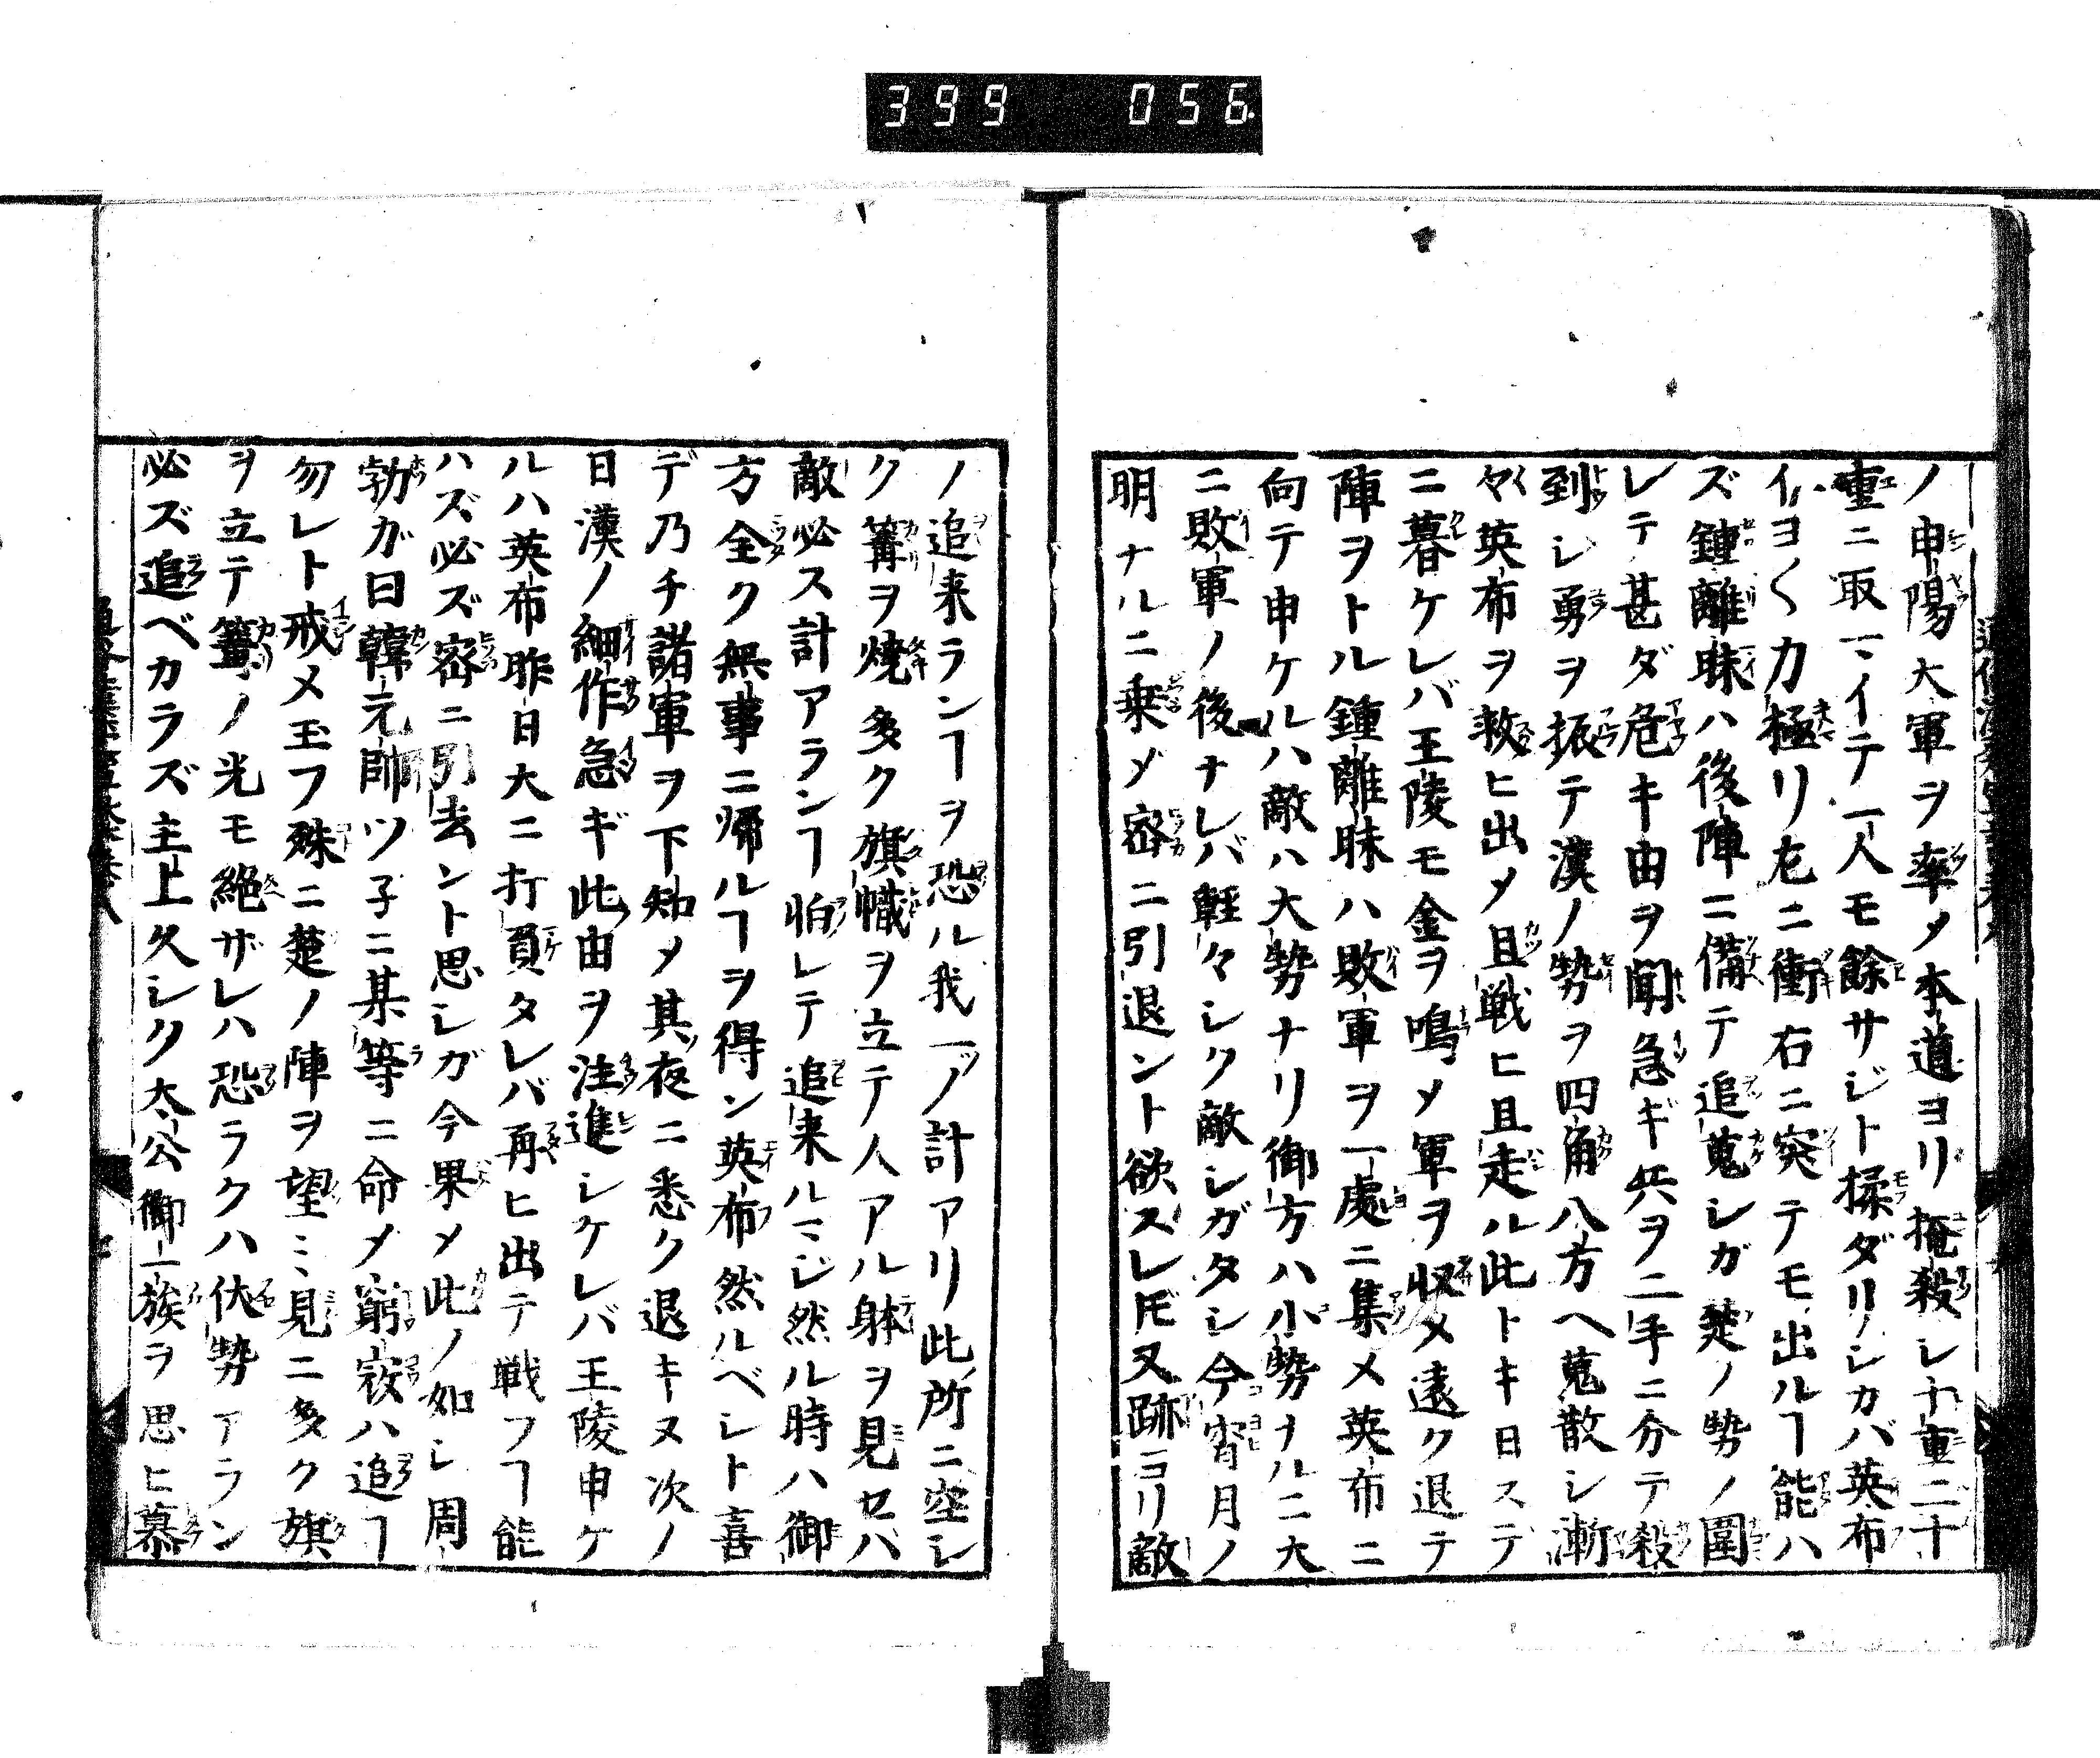 399 056
ノ申陽大軍ヲ率メ本道ヨリ掩殺シ十重二十
重ニ取マイテ一人モ餘サジト揉ダリシカバ英布
イヨ〱力極リ左ニ衝右ニ突テモ出ルヿ能ハ
ズ鍾離昧ハ後陣ニ備テ追蒐シガ楚ノ勢ノ圍
レテ甚ダ危キ由ヲ聞急ギ兵ヲ二手ニ分テ殺
到シ勇ヲ振テ漢ノ勢ヲ四角八方ヘ蒐散シ漸
々英布ヲ救ヒ出メ且戦ヒ且走ル此トキ日ステ
ニ暮ケレバ王陵モ金ヲ鳴メ軍ヲ収メ遠ク退テ
陣ヲトル鍾離昧ハ敗軍ヲ一處ニ集メ英布ニ
向テ申ケルハ敵ハ大勢ナリ御方ハ小勢ナルニ大
ニ敗軍ノ後ナレバ軽々シク敵シガタシ今宵月ノ
明ナルニ乗メ密ニ引退ント欲スレ𪜈又跡ヨリ敵
ノ追来ランヿヲ恐ル我一ツノ計アリ此所ニ空シ
ク篝ヲ焼多ク旗幟ヲ立テ人アル躰ヲ見セバ
敵必ス計アランヿ怕レテ追来ルマジ然ル時ハ御
方全ク無事ニ帰ルヿヲ得ン英布然ルベシト喜
デ乃チ諸軍ヲ下知メ其夜ニ悉ク退キヌ次ノ
日漢ノ細作急ギ此由ヲ注進シケレバ王陵申ケ
ルハ英布昨日大ニ打負タレバ再ヒ出テ戦フヿ能
ハズ必ズ密ニ引去ント思シガ今果メ此ノ如シ周
勃ガ曰韓元帥ツ子ニ某等ニ命メ窮寇ハ追ヿ
勿レト戒メ玉フ殊ニ楚ノ陣ヲ望ミ見ニ多ク旗
ヲ立テ篝ノ光モ絶ザレハ恐ラクハ伏勢アラン
必ズ追ベカラズ主上久シク太公御一族ヲ思ヒ慕